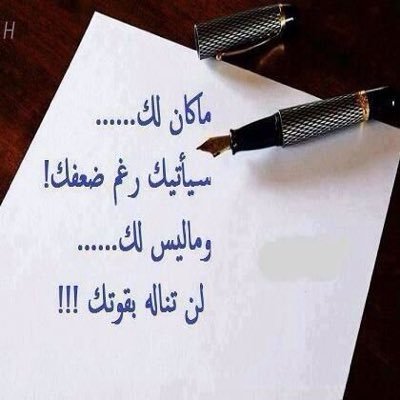 H
ماكان لك......
سيأتيك رغم ضعفك!
وماليس لك......
لن تناله بقوتك !!!